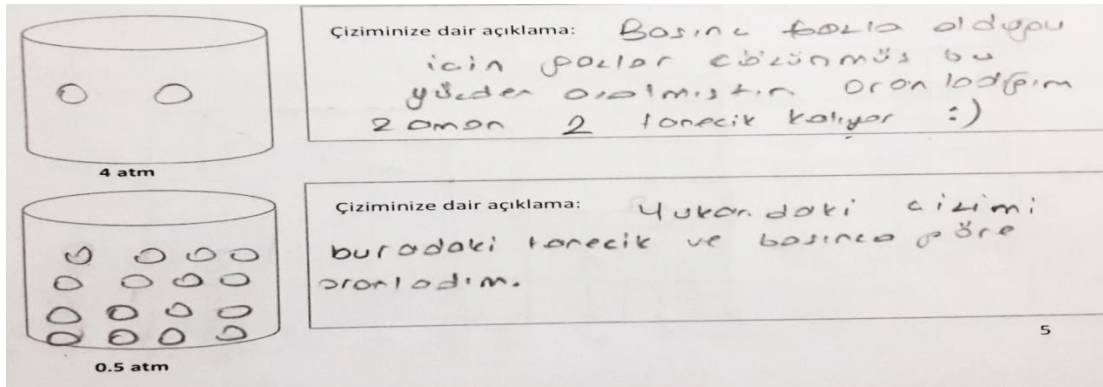 Çiziminize dair açıklama: Basınc fazla olduğu
için gazlar çözünmüş bu
yüzden azalmıştır. Oranladığım
zaman 2 tanecik kalıyor :)
4 atm
Çiziminize dair açıklama: Yukarıdaki çizimi
buradaki tanecik ve basınca göre
oranladım.
5
0.5 atm